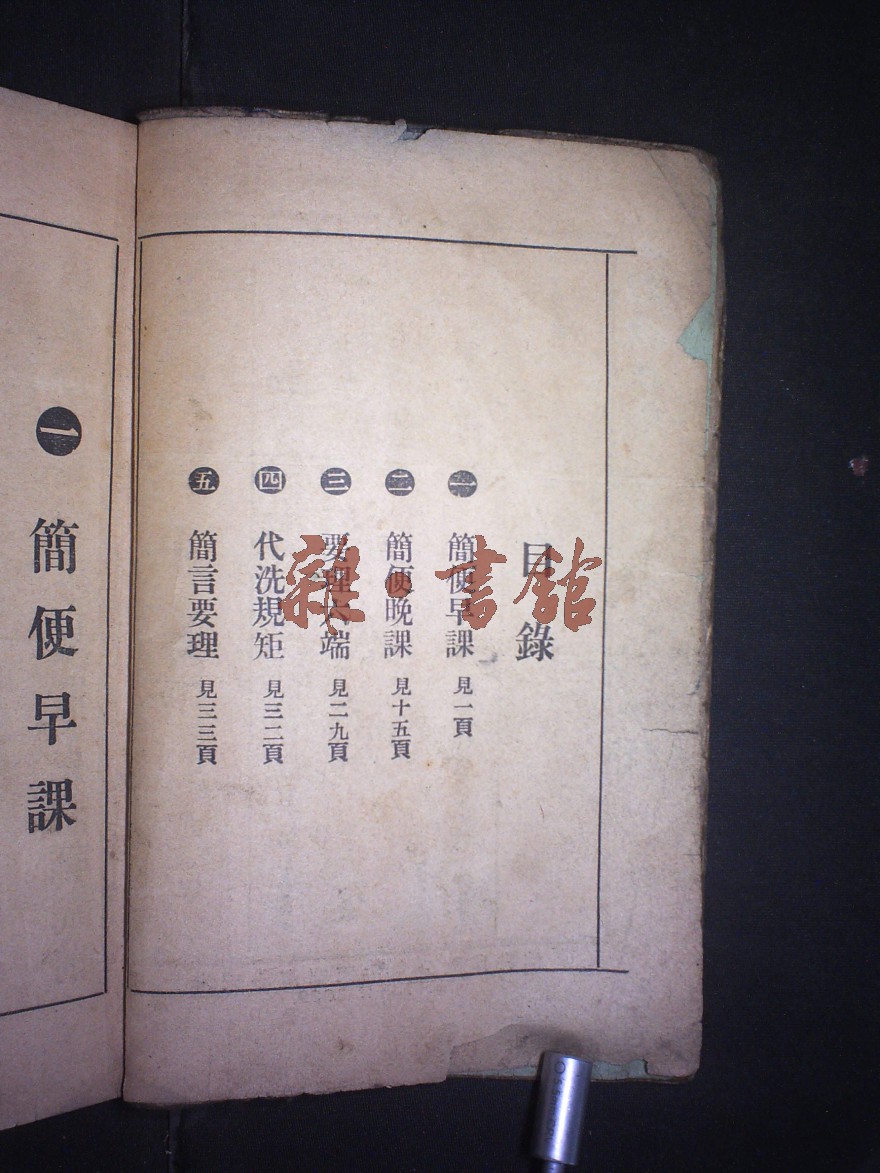 目錄
一 簡便早課 見一頁
二 簡便晚課 見十五頁
三 要理六端 見二九頁
四 代洗規矩 見三二頁
五 簡言要理 見三三頁
一 簡便早課
雜·書館